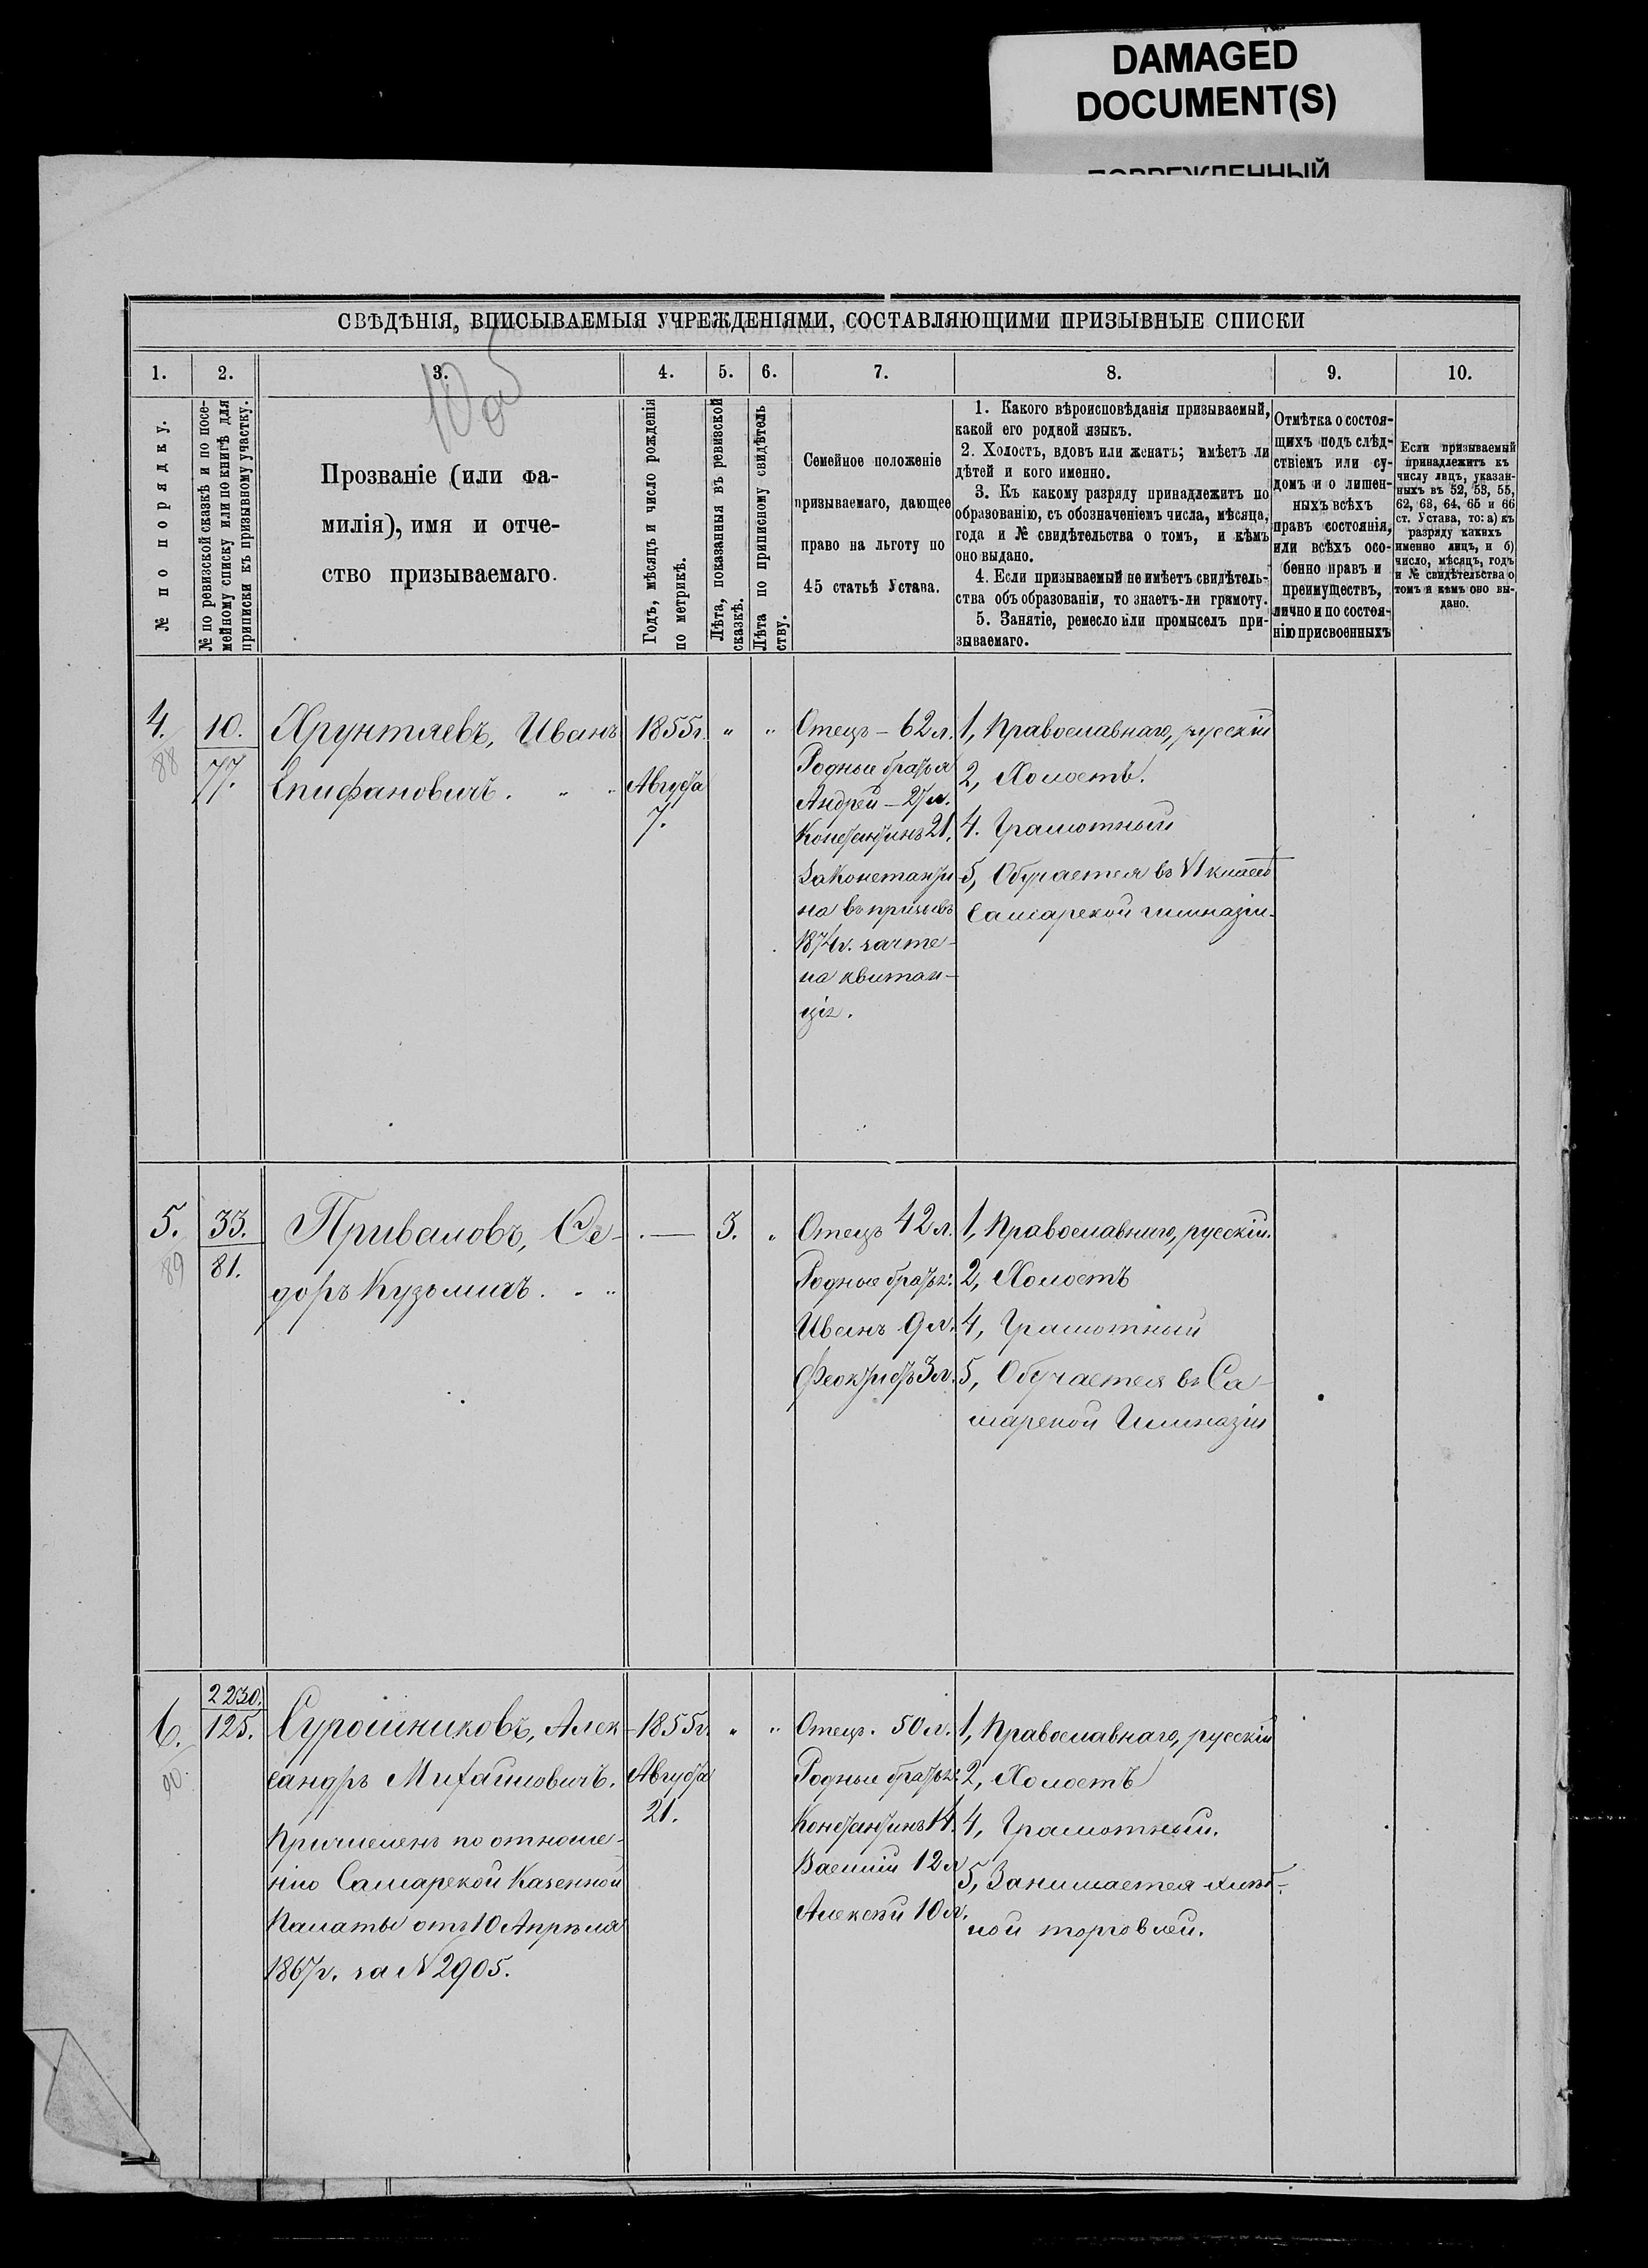 DAMAGED
DOCUMENT(S)
ПОВРЕЖДЕННЫЙ
СВѢДѢНІЯ, ВПИСЫВАЕМЫЯ УЧРЕЖДЕНІЯМИ, СОСТАВЛЯЮЩИМИ ПРИЗЫВНЫЕ СПИСКИ
1.
2.
3.
4.
5.
6.
7.
8.
9.
10.
№ по порядку.
№ по ревизской сказкѣ и по посе-
мейному списку или по книгѣ для
приписки къ призывному участку.
Прозваніе (или фа-
милія), имя и отче-
ство призываемаго.
Годъ, мѣсяцъ и число рожденія
по метрикѣ.
Лѣта, показанныя въ ревизской
сказкѣ.
Лѣта по приписному свидѣтель
ству.
Семейное положеніе
призываемаго, дающее
право на льготу по
45 статьѣ Устава.
1. Какого вѣроисповѣданія призываемый,
какой его родной языкъ.
2. Холостъ, вдовъ или женатъ; имѣетъ ли
дѣтей и кого именно.
3. Къ какому разряду принадлежитъ по
образованію, съ обозначеніемъ числа, мѣсяца,
года и № свидѣтельства о томъ, и кѣмъ
оно выдано.
4. Если призываемый не имѣетъ свидѣтель-
ства объ образованіи, то знаетъ-ли грамоту.
5. Занятіе, ремесло или промыселъ при-
зываемаго.
Отмѣтка о состоя-
щихъ подъ слѣд-
ствіемъ или су-
домъ и о лишен-
ныхъ всѣхъ
правъ состоянія,
или всѣхъ осо-
бенно правъ и
преимуществъ,
лично и по состоя-
нію присвоенныхъ
Если призываемый
принадлежитъ къ
числу лицъ, указан-
ныхъ въ 52, 53, 55,
62, 63, 64, 65 и 66
ст. Устава, то: а) къ
разряду какихъ
именно лицъ, и б)
число, мѣсяцъ, годъ
и № свидѣтельства о
томъ и кѣмъ оно вы-
дано.
4.
88
10.
77.
Хрунтяевъ, Иванъ
Епифановичъ. " "
1855г.
Августа
7.
"
"
Отецъ – 62 л.
Родные братья
Андрей – 27 л.
Константинъ 21.
За Константи
на въ призывъ
1874 г. зачте-
на квитан-
ція.
1, Православнаго, русскій
2, Холостъ.
4. Грамотный
5, Обучается въ VI классѣ
Самарской гимназіи.
5.
89
33.
81.
Приваловъ, Ѳе-
доръ Кузьмичъ. " "
—
3.
"
Отецъ 42 л.
Родные братья:
Иванъ 9 л.
Феоктистъ 3 л.
1, Православнаго, русскій.
2, Холостъ
4, Грамотный
5, Обучается въ Са-
марской Гимназіи
6.
90.
2230.
125.
Сурошниковъ, Алек-
сандръ Михайловичъ.
Причисленъ по отноше-
нію Самарской Казенной
Палаты отъ 10 Апрѣля
1867 г. за № 2905.
1855 г.
Августа
21.
"
"
Отецъ. 50 л.
Родные братья:
Константинъ 14.
Василій 12 л
Алексѣй 10 л.
1, Православнаго, русскій
2, Холостъ
4, Грамотный.
5, Занимается хлѣб-
ной торговлей.